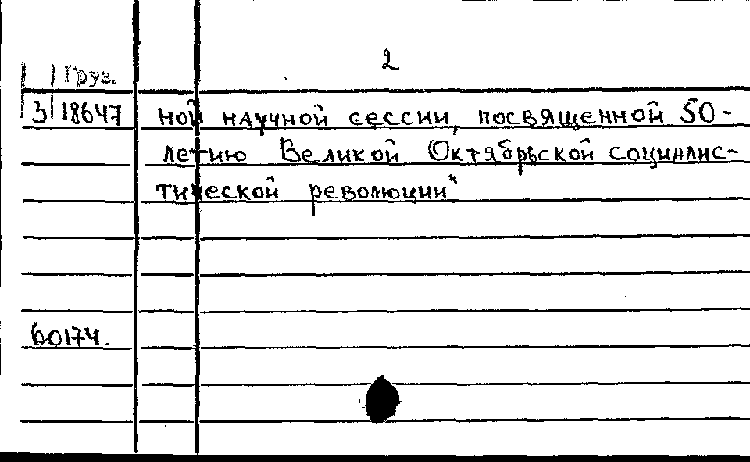 2
Груз.
3 18647
ной научной сессии, посвященной 50-
летию Великой Октябрьской социалис-
тической революции"
60174.